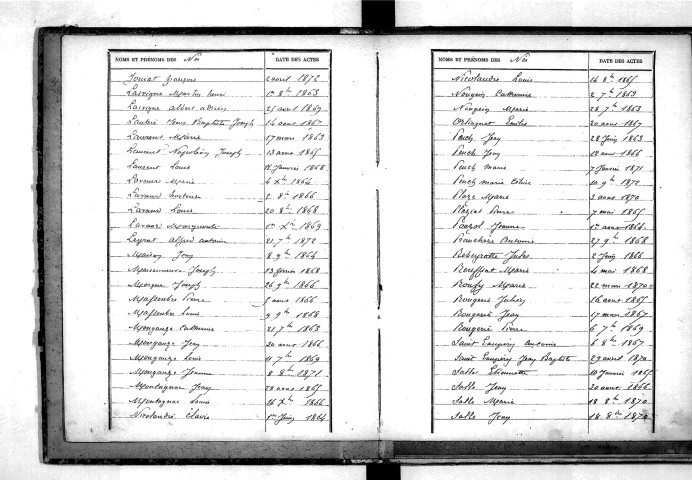 NOMS ET PRÉNOMS DES Nés DATE DES ACTES
Joviat François 2 avril 1872
Lavigne 1er 8bre 1863
Lavigne albert 25 avril 1869
Jean Baptiste Joseph 14 août 1867
Laurent Marie 17 mars 1863
Laurent Napoléon Joseph 13 août 1865
Laurent Louis Janvier 1868
Laveur Marie 4 Xbre 1864
Laveur 2 8bre 1866
Laveur Louis 20 8bre 1868
Laveur Marguerite 1er Xbre 1869
Leyrat alfred antoine 21 7bre 1872
Jean 8 9bre 1864
Maisonneuve Joseph 13 février 1868
Joseph 26 9bre 1866
Pierre août 1866
Louis 9 9bre 1868
Monganze Catherine 21 7bre 1863
Monganze Jean 20 août 1866
Monganze Louis 11 7bre 1869
Monganze Jeanne 8 8bre 1871
Montagnac Jean 28 août 1865
Montagnac Louis 16 Xbre 1866
Nicolaudré Clavie 1er Juin 1864
NOMS ET PRÉNOMS DES Nés DATE DES ACTES
Nicolaudré Louis 14 8bre 1865
Nougein Catherine 2 7bre 1863
Nougein Marie 28 7bre 1863
Emile 20 août 1867
Peuch Jean 28 Juin 1863
Peuch Jean 12 août 1866
Peuch Marie 7 Janvier 1871
Peuch Marie 10 9bre 1872
Marie 3 août 1870
Pierre 7 mai 1865
Jeanne 1er août 1864
Planchère Antoine 27 9bre 1868
Rebeyrotte Jules 2 Juin 1866
Rouffiat Marie 4 mai 1868
Rouby Marie 22 mars 1870
Rougerie 16 août 1865
Rougerie Jean 17 mars 1867
Rougerie Pierre 6 7bre 1869
Saint Exupéry Antoine 6 8bre 1867
Saint Exupéry Jean Baptiste 29 avril 1870
Salle Etiennette 10 Janvier 1865
Salle Jean 20 août 1866
Salle Marie 18 8bre 1870
Salle Jean 18 8bre 1870